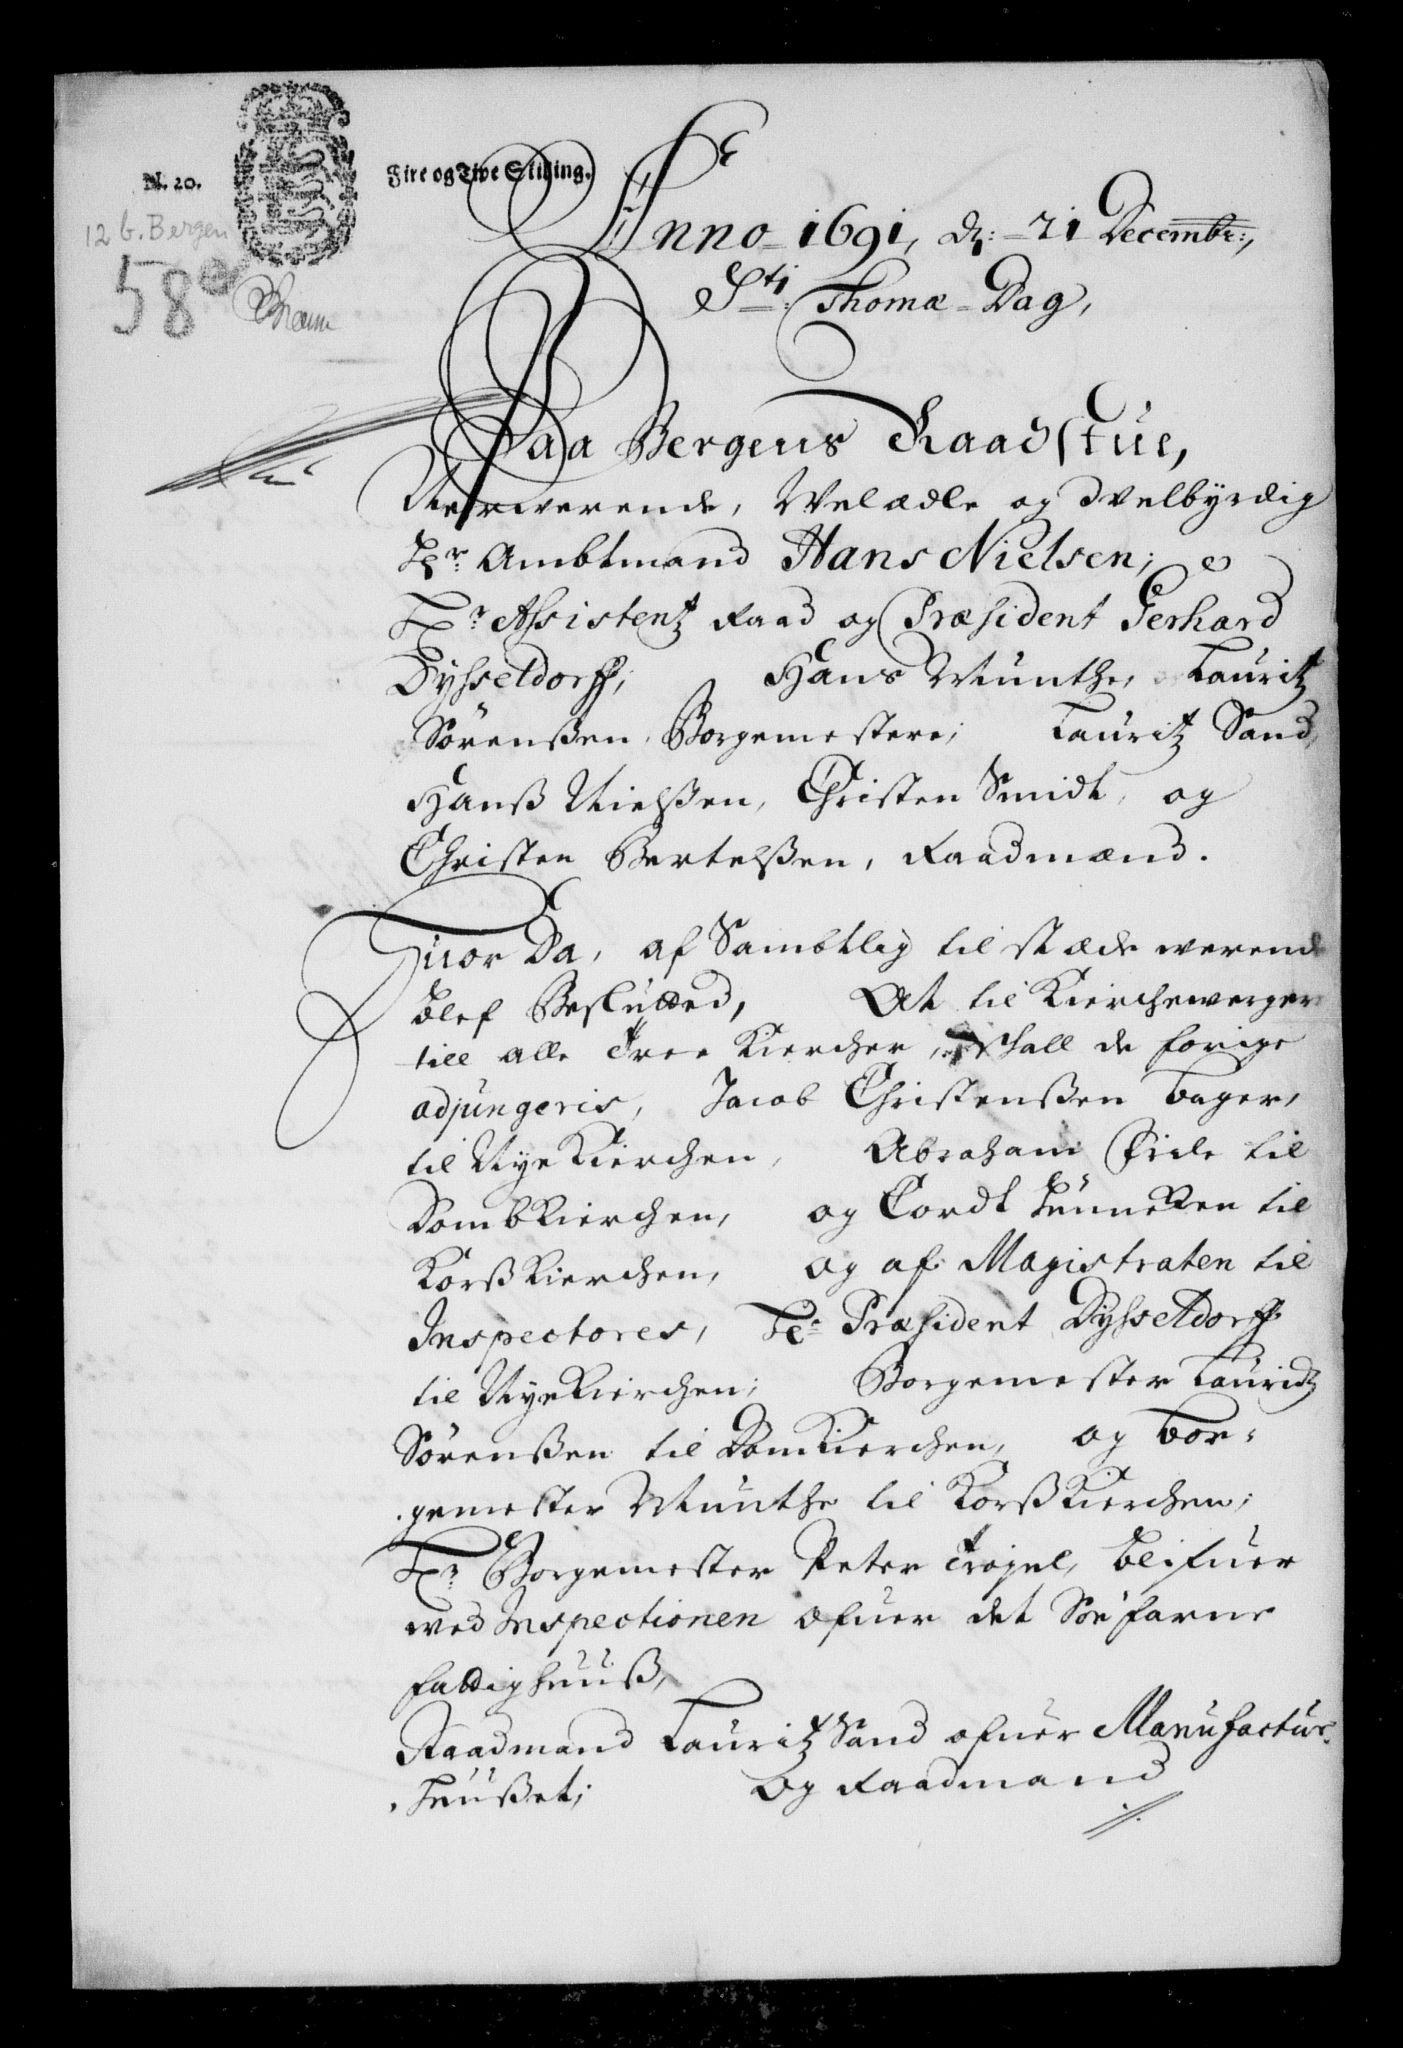 N. 20.
Fire og Tive Skilling.
12 b. Bergen
58
Anno 1691, d: 21 Decembr:,
Sti: Thomæ Dag,
Paa Bergens Raadstue,
Nerwerende, Welædle og Welbyrdig
Hr. Ambtmand Hans Nielsen;
Hr. Assistentz Raad og Præsident Gerhard
Dysseldorff, Hans Munthe, Lauritz
Sörenßen, Borgemestere; Lauritz Sand,
Hanß Nielßen, Christen Smidt, og
Christen Bertelßen, Raadmænd.
Huor Da, af Sambtlig til stæde werende
blef Beslutted, At til Kierchewerger
till alle Tree Kiercher, schall de forige
adjungeris, Jacob Christenßen bager,
til Nye Kierchen, Abraham til
Domb Kierchen, og Cordt til
Korß Kierchen, og af Magistraten til
Inspectores, Hr. Præsident Dysseldorff
til Nye Kierchen; Borgemester Lauridtz
Sörenßen til Dom Kierchen, og bor-
gemester Munthe til Korß Kierchen;
Hr. Borgemester Peter blifuer
wed Inspectionen ofuer det Söefarne
fattighuuß,
Raadmand Lauritz Sand ofuer Manufactur
huußet; Og Raadmand